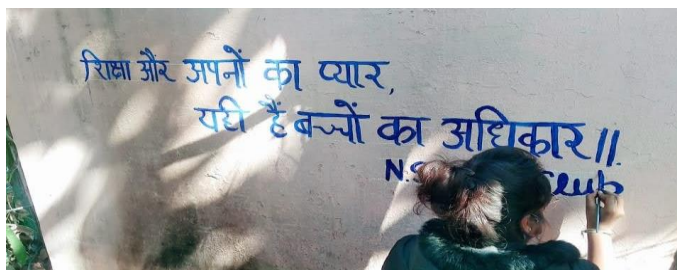 शिक्षा और अपनों का प्यार,
यही हैं बच्चों का अधिकार।।.
Club